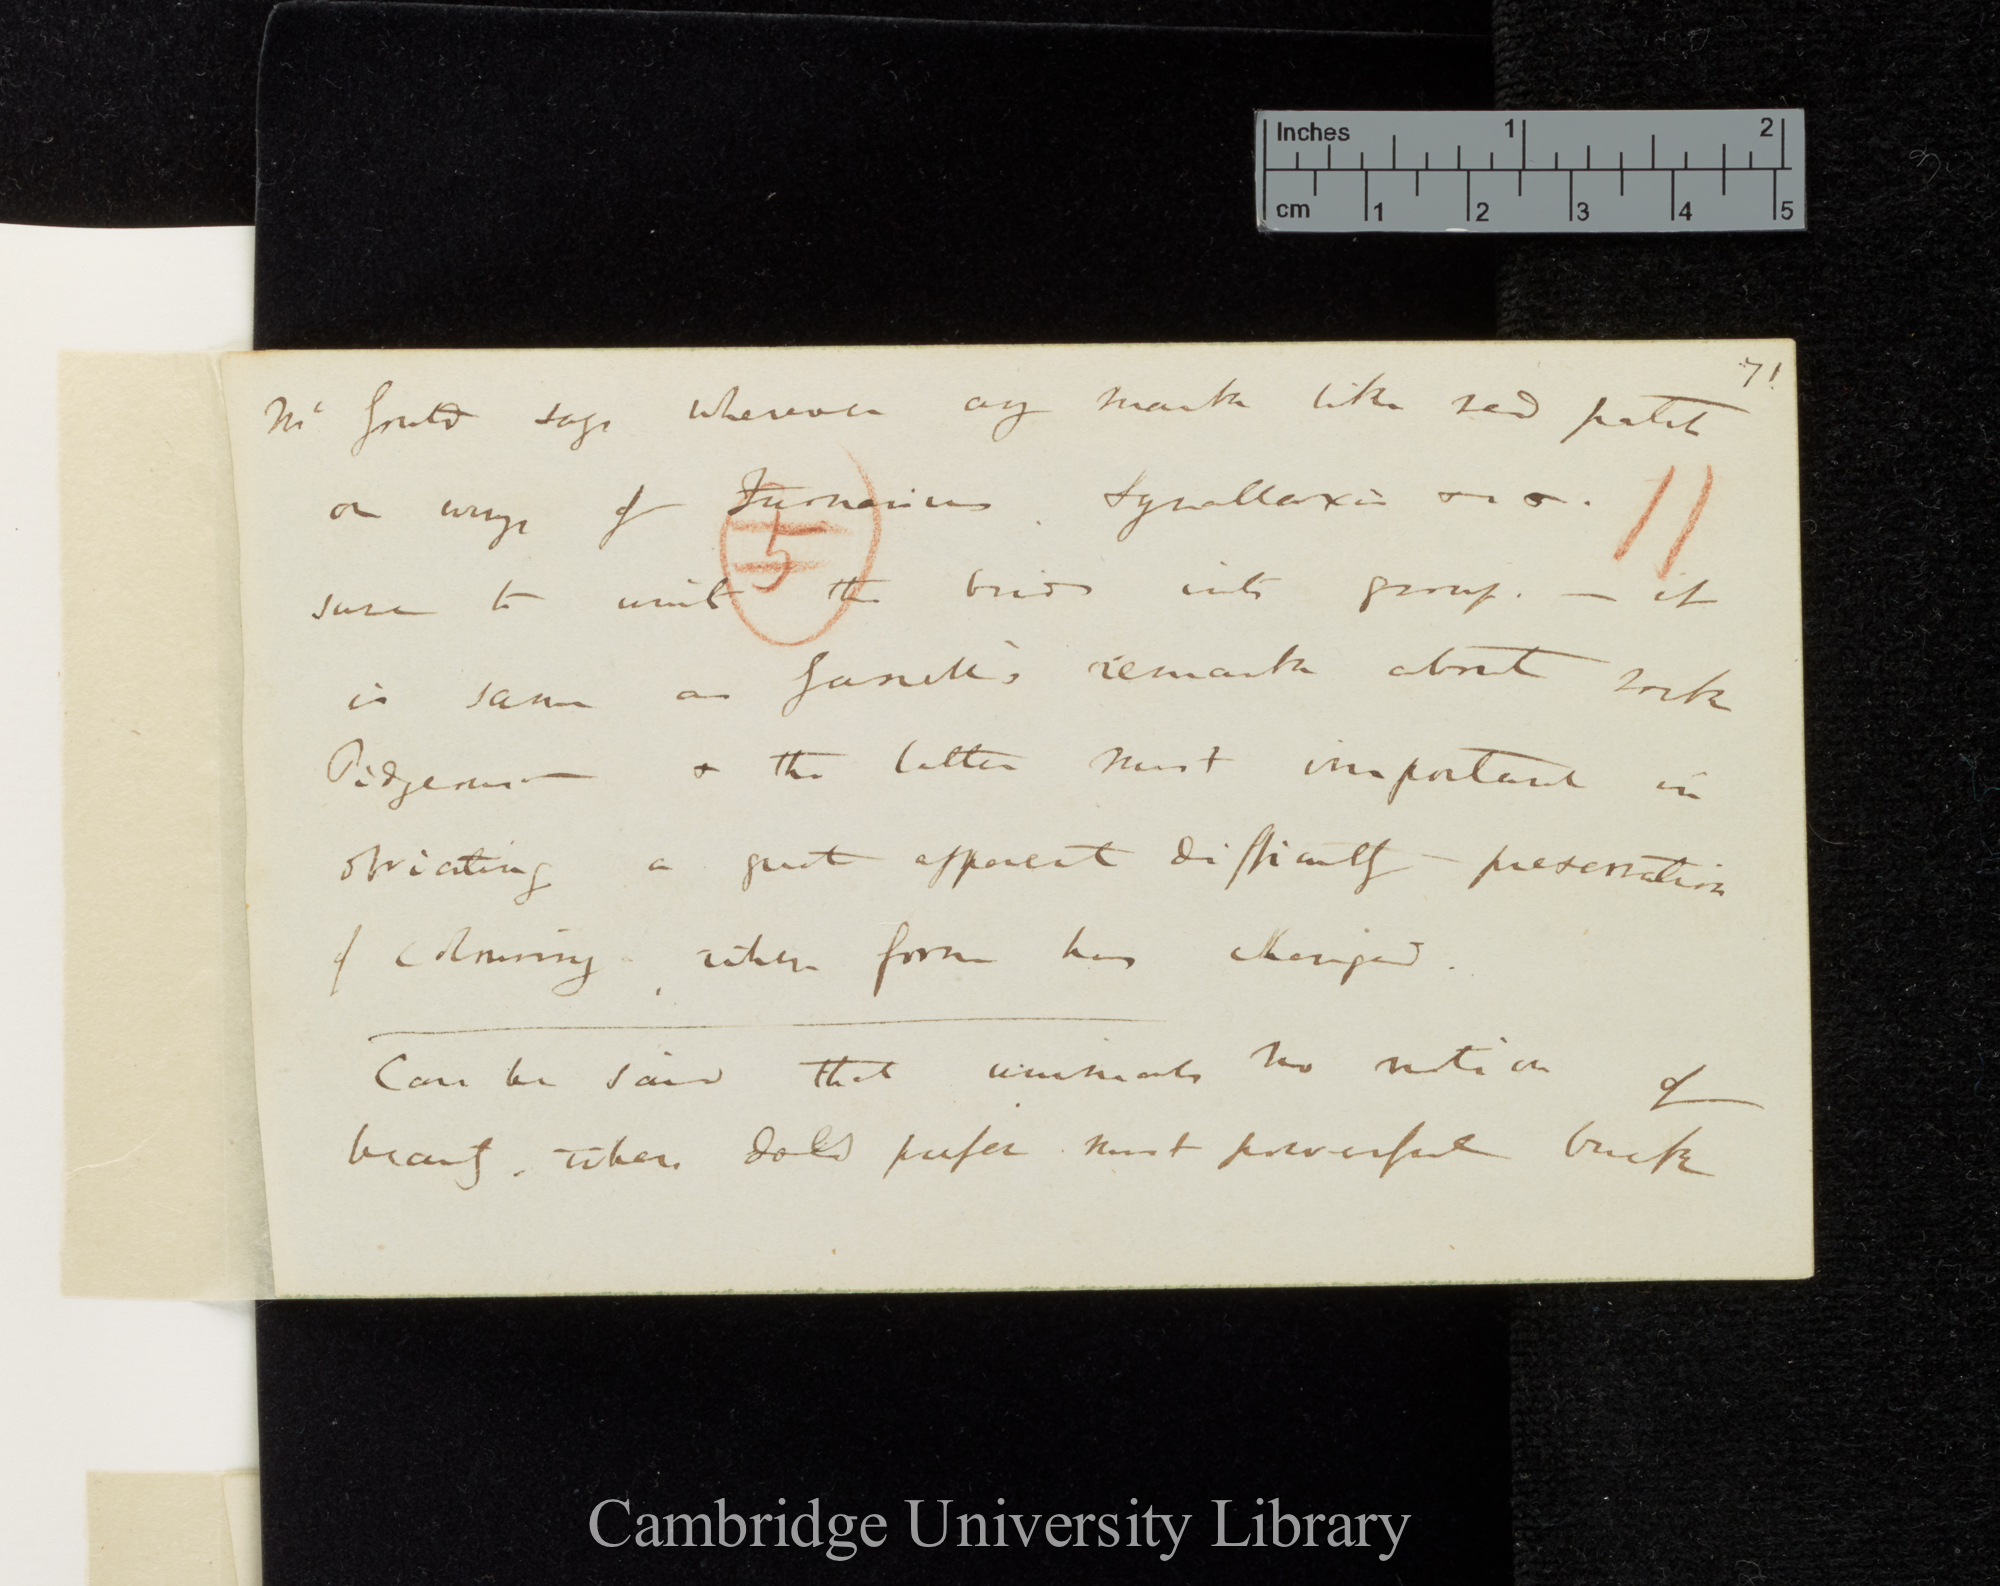 Inches 1 2
cm 1 2 3 4 5
71
Mr Gould says wherever any mark like red patch
on wings of Furnarius. Synallaxis &c &c.
11
5
sure to unite the birds into group. — it
is same as Yarrell's remark about rock
Pidgeons — & the latter most important in
obviating a great apparent difficulty — preservation
of colouring, when form has changed.
Can be said that animals no notion of
beauty, when does prefer most powerful buck
Cambridge University Library